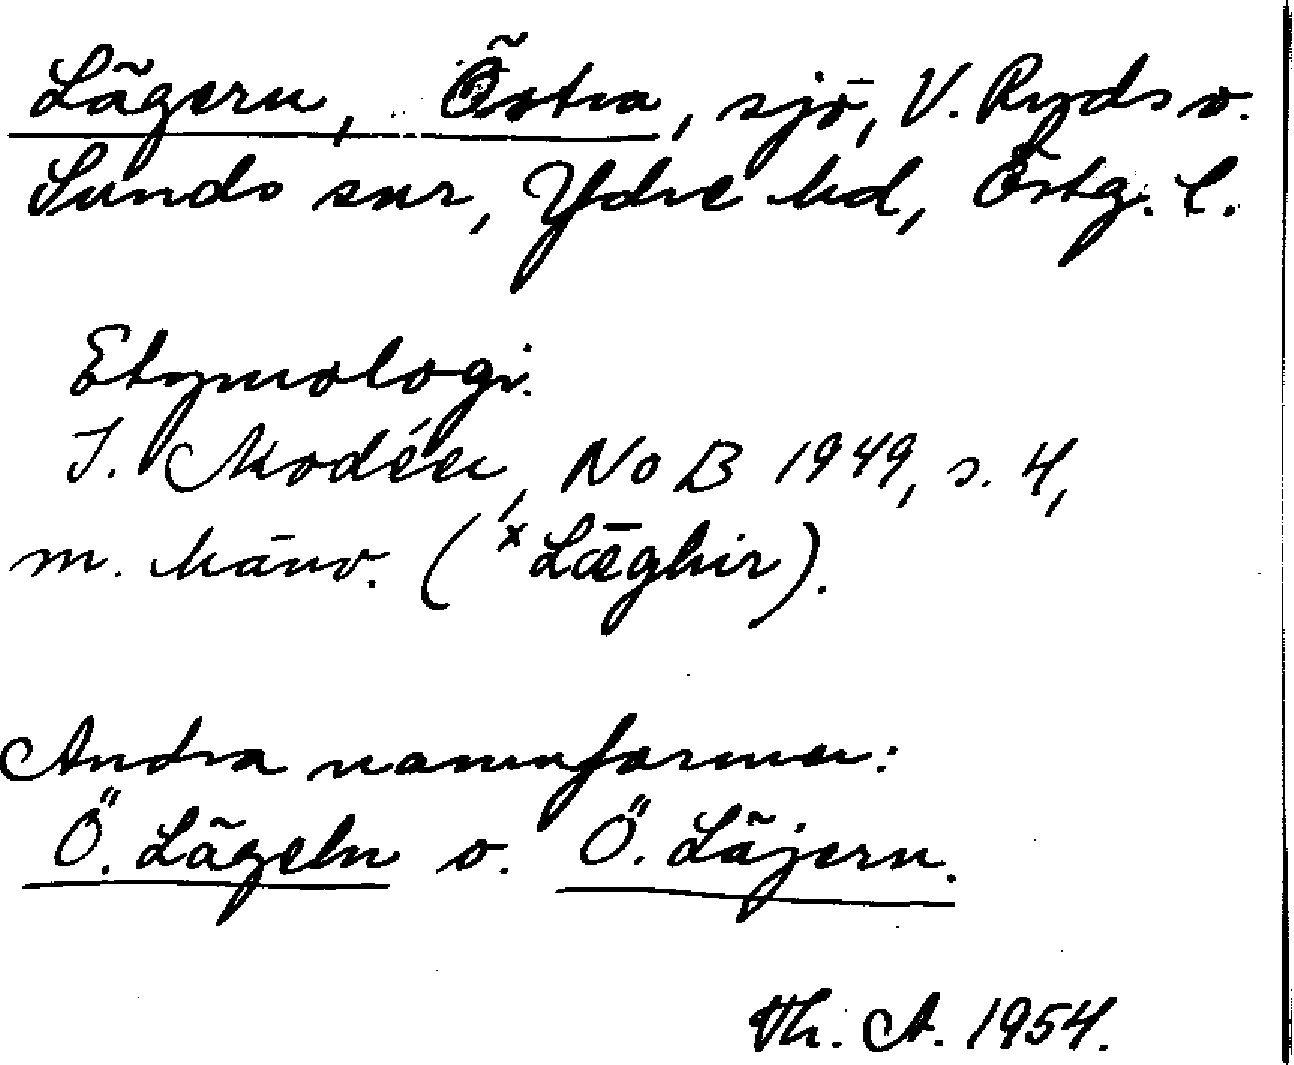 Lägern, Östra, sjö, V. Ryds o.
Sunds snr, Ydre hd, Östg. l.
Etymologi.
I. Modéer, NoB 1949, s. 4,
m. hänv. (ˣLǣghir).
Andra namnformer:
Ö. Lägeln o. Ö. Läjern.
Th. A. 1954.